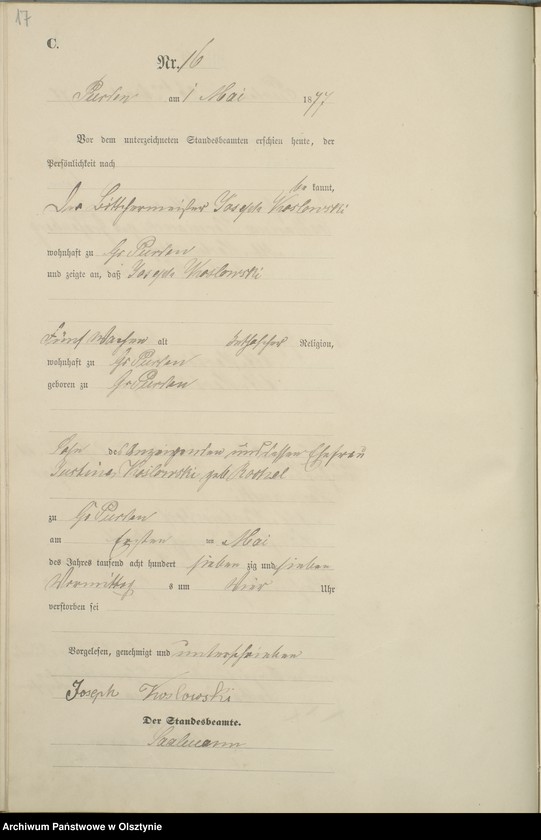 17
C.
Nr. 16
Purden am 1 Mai 1877
Vor dem unterzeichneten Standesbeamten erschien heute, der
Persönlichkeit nach
be kannt,
Der Böttchermeister Joseph Koslowski
wohnhaft zu Gr Purden
und zeigte an, daß Joseph Koslowski
Fünf Wochen alt katholischer Religion,
wohnhaft zu Gr Purden
geboren zu Gr Purden
Sohn des Anzeigenden und dessen Ehefrau
Justina Koslowski geb
zu Gr Purden
am Ersten = Mai
des Jahres tausend acht hundert sieben zig und sieben
Vormittag s um Uhr
verstorben sei
Vorgelesen, genehmigt und unterschrieben
Joseph Koslowski
Der Standesbeamte.
Archiwum Państwowe w Olsztynie